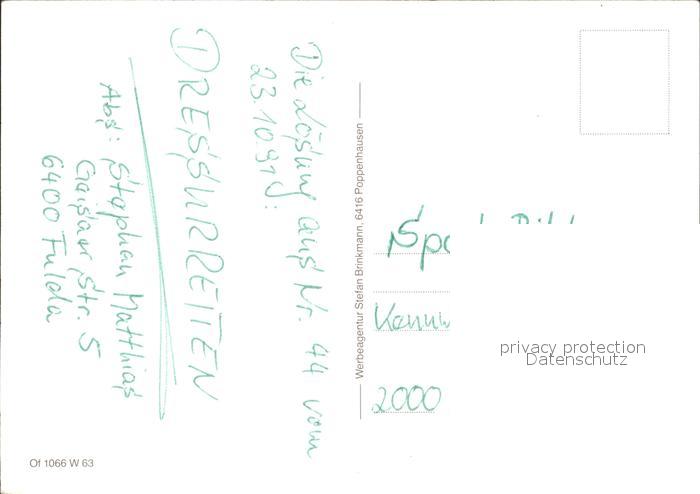 Die Lösung aus Nr. 44 vom
23.10.91:
DRESSURREITEN
Abs: Stephan Matthias
6400 Fulda
Werbeagentur Stefan Brinkmann, 6416 Poppenhausen
2000
privacy protection
Datenschutz
Of 1066 W 63